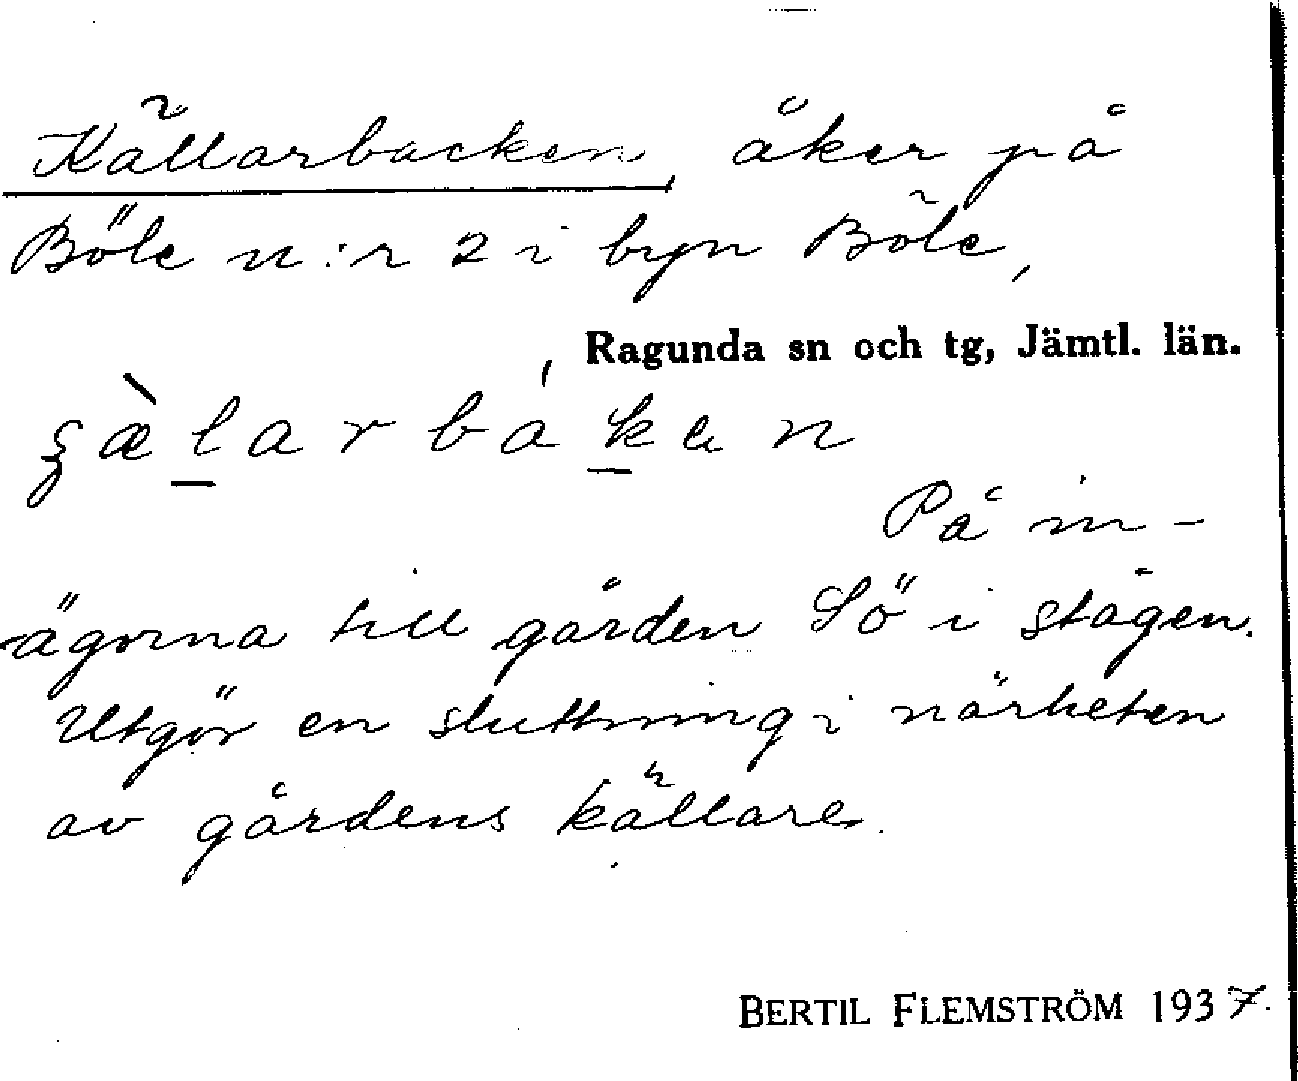 Källarbacken, åker på
Böle n:r 2 i byn Böle,
Ragunda sn och tg, Jämtl. län.
på in-
ägorna till gården Sö i stägen.
Utgör en sluttning i närheten
av gårdens källare.
BERTIL FLEMSTRÖM 1937.